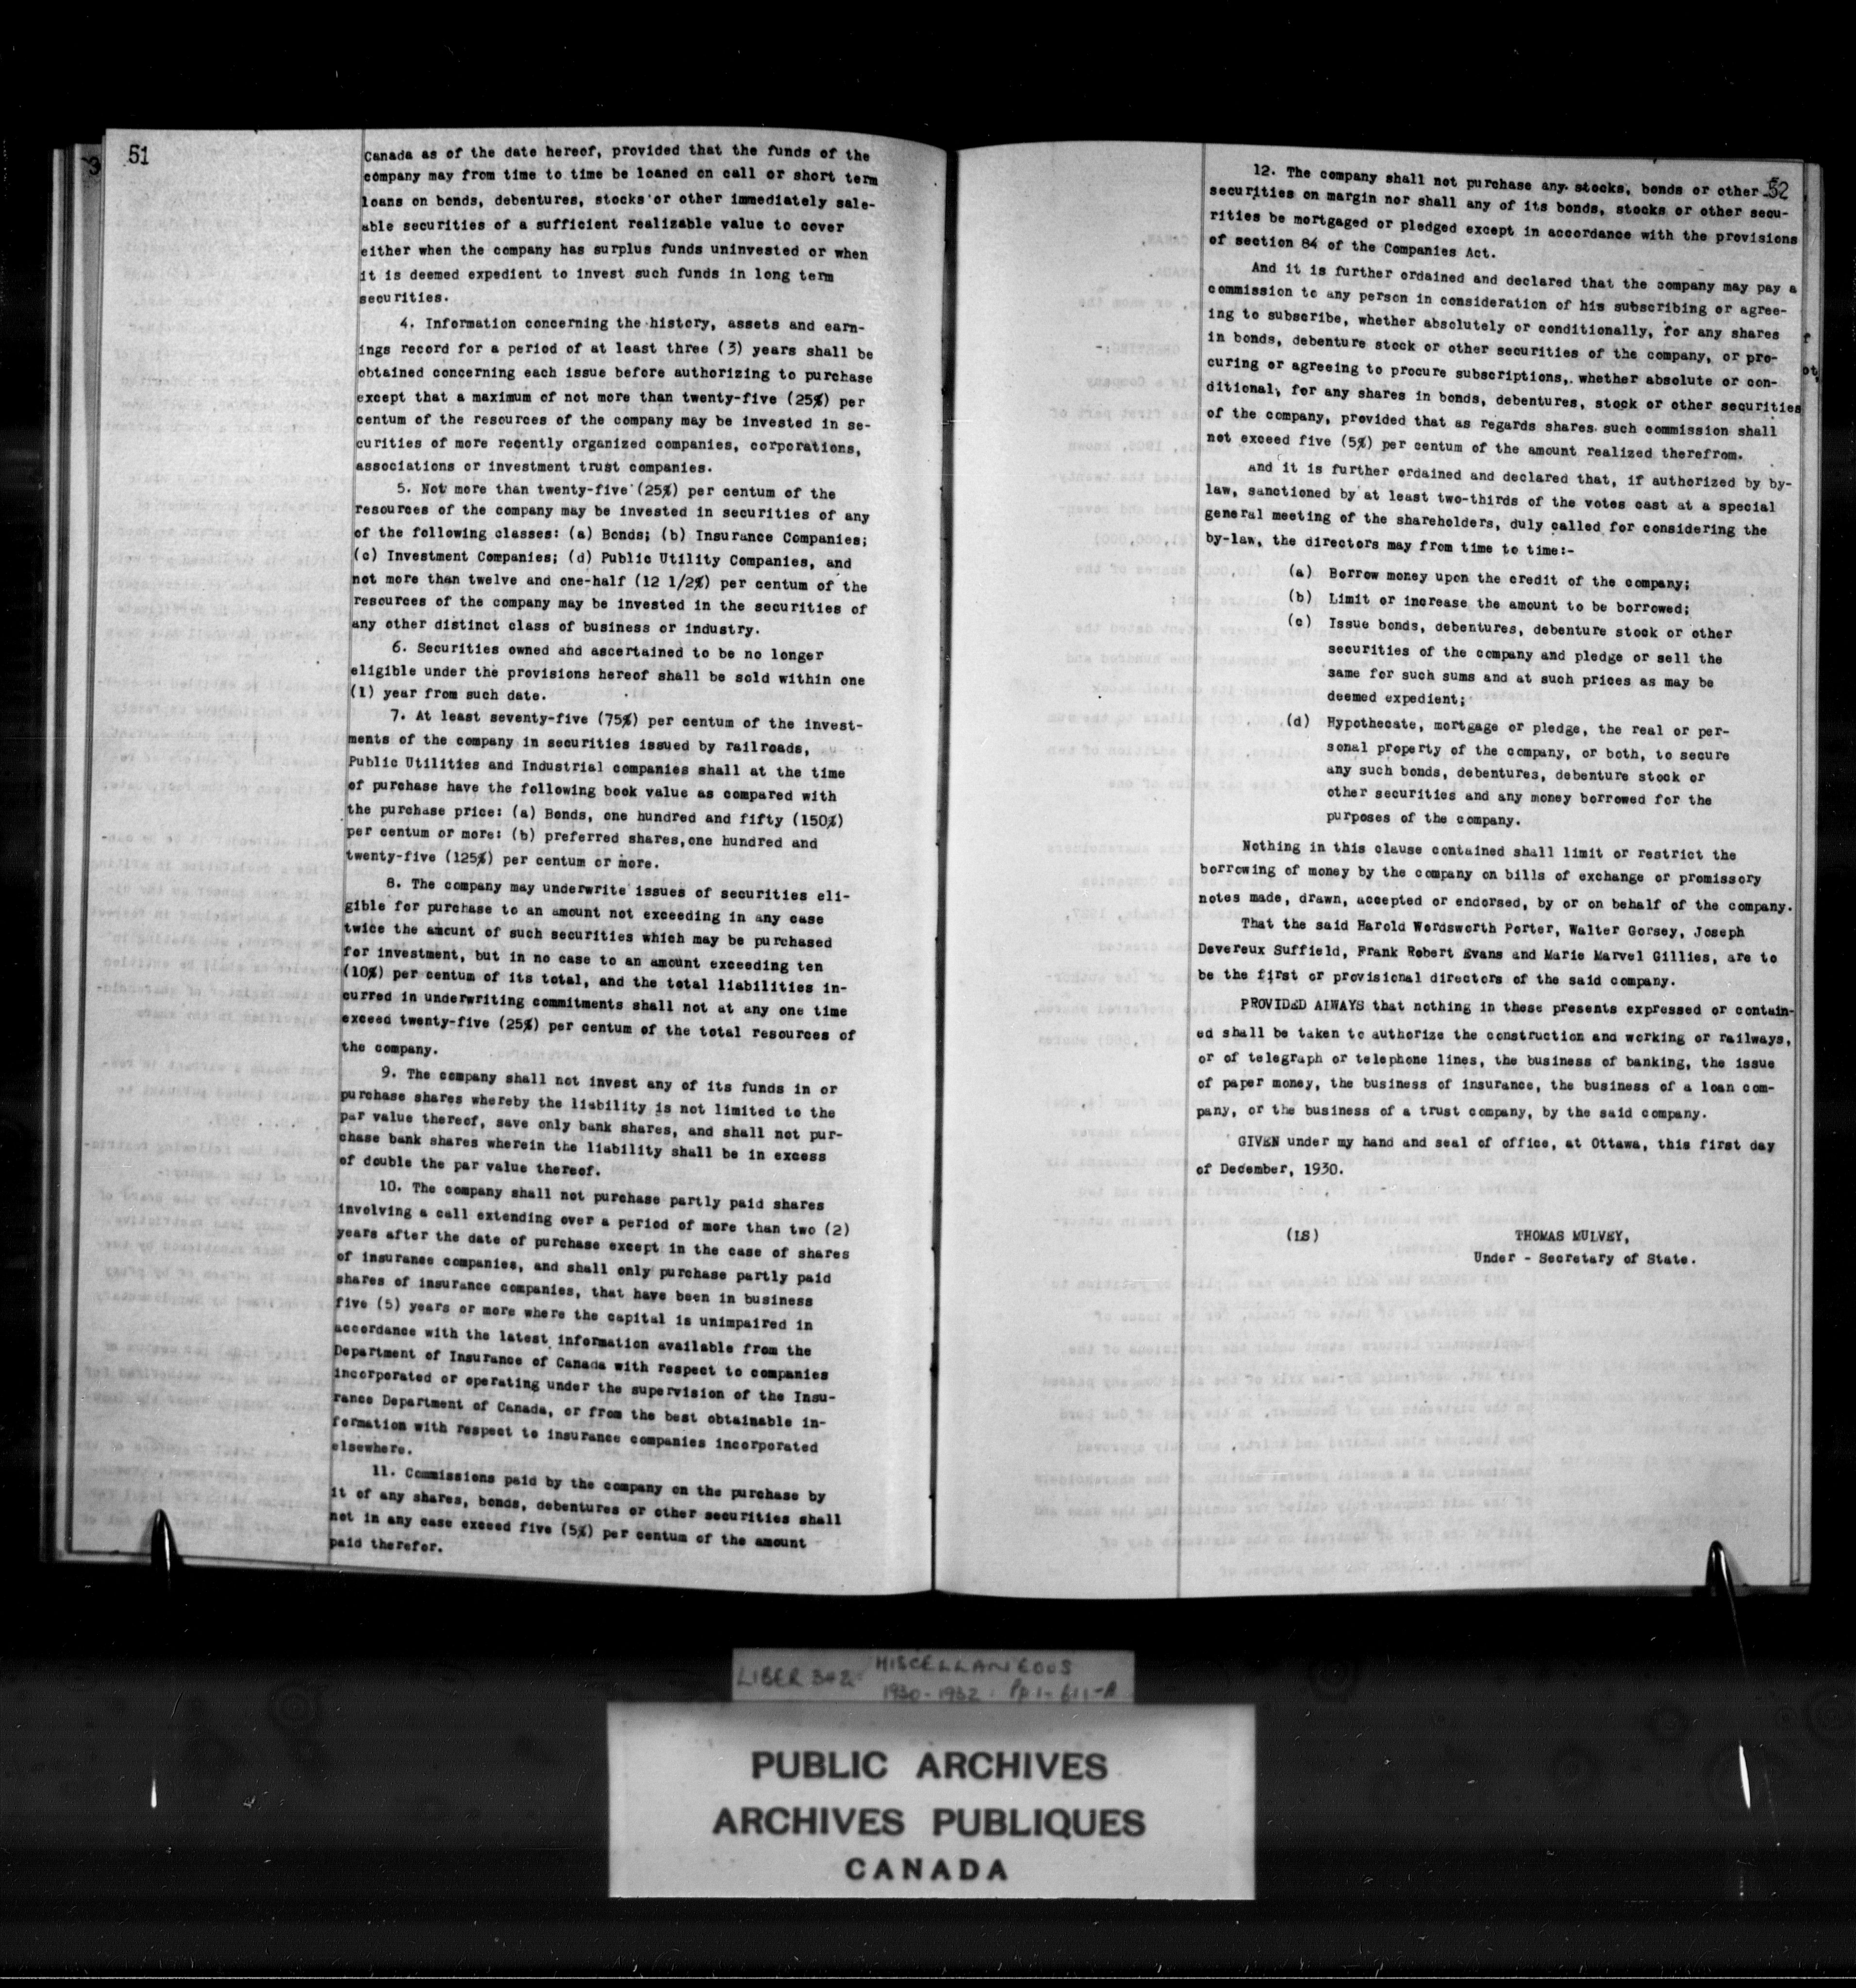 51
Canada as of the date hereof, provided that the funds of the
company may from time to time be loaned on call or short term
loans on bonds, debentures, stocks or other immediately sale-
able securities of a sufficient realizable value to cover
either when the company has surplus funds uninvested or when
it is deemed expedient to invest such funds in long term
securities.
4. Information concerning the history, assets and earn-
ings record for a period of at least three (3) years shall be
obtained concerning each issue before authorizing to purchase
except that a maximum of not more than twenty-five (25%) per
centum of the resources of the company may be invested in se-
curities of more recently organized companies, corporations,
associations or investment trust companies.
5. Not more than twenty-five (25%) per centum of the
resources of the company may be invested in securities of any
of the following classes: (a) Bonds; (b) Insurance Companies;
(c) Investment Companies; (d) Public Utility Companies, and
not more than twelve and one-half (12 1/2%) per centum of the
resources of the company may be invested in the securities of
any other distinct class of business or industry.
6. Securities owned and ascertained to be no longer
eligible under the provisions hereof shall be sold within one
(1) year from such date.
7. At least seventy-five (75%) per centum of the invest-
ments of the company in securities issued by railroads,
Public Utilities and Industrial companies shall at the time
of purchase have the following book value as compared with
the purchase price: (a) Bonds, one hundred and fifty (150%)
per centum or more: (b) preferred shares,one hundred and
twenty-five (125%) per centum or more.
8. The company may underwrite issues of securities eli-
gible for purchase to an amount not exceeding in any case
twice the amount of such securities which may be purchased
for investment, but in no case to an amount exceeding ten
(10%) per centum of its total, and the total liabilities in-
curred in underwriting commitments shall not at any one time
exceed twenty-five (25%) per centum of the total resources of
the company.
9. The company shall not invest any of its funds in or
purchase shares whereby the liability is not limited to the
par value thereof, save only bank shares, and shall not pur-
chase bank shares wherein the liability shall be in excess
of double the par value thereof.
10. The company shall not purchase partly paid shares
involving a call extending over a period of more than two (2)
years after the date of purchase except in the case of shares
of insurance companies, and shall only purchase partly paid
shares of insurance companies, that have been in business
five (5) years or more where the capital is unimpaired in
accordance with the latest information available from the
Department of Insurance of Canada with respect to companies
incorporated or operating under the supervision of the Insu-
rance Department of Canada, or from the best obtainable in-
formation with respect to insurance companies incorporated
elsewhere.
11. Commissions paid by the company on the purchase by
it of any shares, bonds, debentures or other securities shall
not in any case exceed five (5%) per centum of the amount
paid therefor.
52
12. The company shall not purchase any stocks, bonds or other
securities on margin nor shall any of its bonds, stocks or other secu-
rities be mortgaged or pledged except in accordance with the provisions
of section 84 of the Companies Act.
And it is further ordained and declared that the company may pay a
commission to any person in consideration of his subscribing or agree-
ing to subscribe, whether absolutely or conditionally, for any shares
in bonds, debenture stock or other securities of the company, or pro-
curing or agreeing to procure subscriptions, whether absolute or con-
ditional, for any shares in bonds, debentures, stock or other securities
of the company, provided that as regards shares such commission shall
not exceed five (5%) per centum of the amount realized therefrom.
And it is further ordained and declared that, if authorized by by-
law, sanctioned by at least two-thirds of the votes cast at a special
general meeting of the shareholders, duly called for considering the
by-law, the directors may from time to time:-
(a) Borrow money upon the credit of the company;
(b) Limit or increase the amount to be borrowed;
(c) Issue bonds, debentures, debenture stock or other
securities of the company and pledge or sell the
same for such sums and at such prices as may be
deemed expedient;
(d) Hypothecate, mortgage or pledge, the real or per-
sonal property of the company, or both, to secure
any such bonds, debentures, debenture stock or
other securities and any money borrowed for the
purposes of the company.
Nothing in this clause contained shall limit or restrict the
borrowing of money by the company on bills of exchange or promissory
notes made, drawn, accepted or endorsed, by or on behalf of the company.
That the said Harold Wordsworth Porter, Walter Gorsey, Joseph
Devereux Suffield, Frank Robert Evans and Marie Marvel Gillies, are to
be the first or provisional directors of the said company.
PROVIDED ALWAYS that nothing in these presents expressed or contain-
ed shall be taken to authorize the construction and working or railways,
or of telegraph or telephone lines, the business of banking, the issue
of paper money, the business of insurance, the business of a loan com-
pany, or the business of a trust company, by the said company.
GIVEN under my hand and seal of office, at Ottawa, this first day
of December, 1930.
(LS) THOMAS MULVEY,
Under - Secretary of State.
LIBER 342 MISCELLANEOUS
1930-1932 Pp. 1-
PUBLIC ARCHIVES
ARCHIVES PUBLIQUES
CANADA